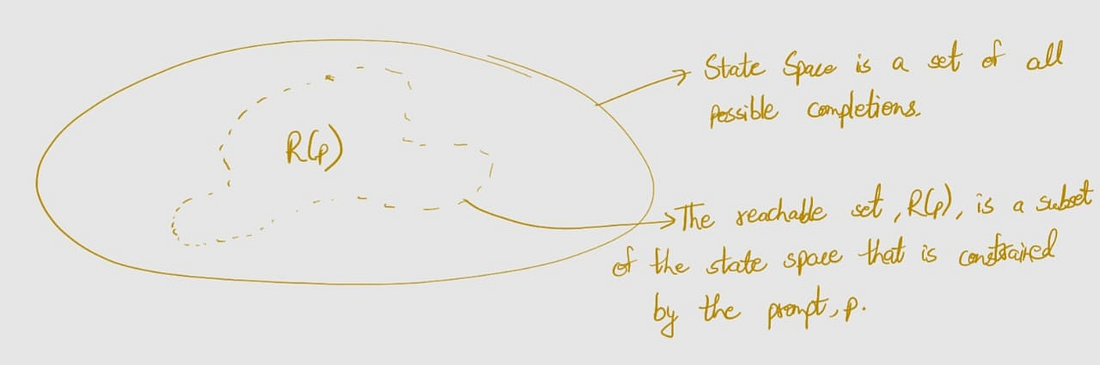 R(p)
State Space is a set of all
possible completions.
The reachable set, R(p), is a subset
of the state space that is constrained
by the prompt, p.